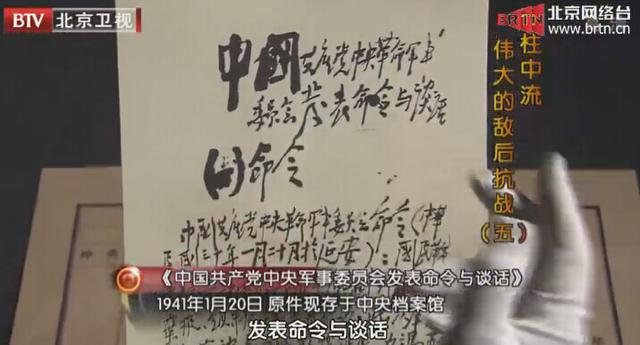 BTV 北京卫视
BRTN 北京网络台
www.brtn.cn
柱中流
伟大的敌后抗战（五）
中國共产党中央革命军事
委员会发表命令与谈话
(一)命令
中國共产党中央革命军事委员会命令(中华
民国三十年一月二十日於延安)：國民
《中国共产党中央军事委员会发表命令与谈话》
1941年1月20日 原件现存于中央档案馆
发表命令与谈话